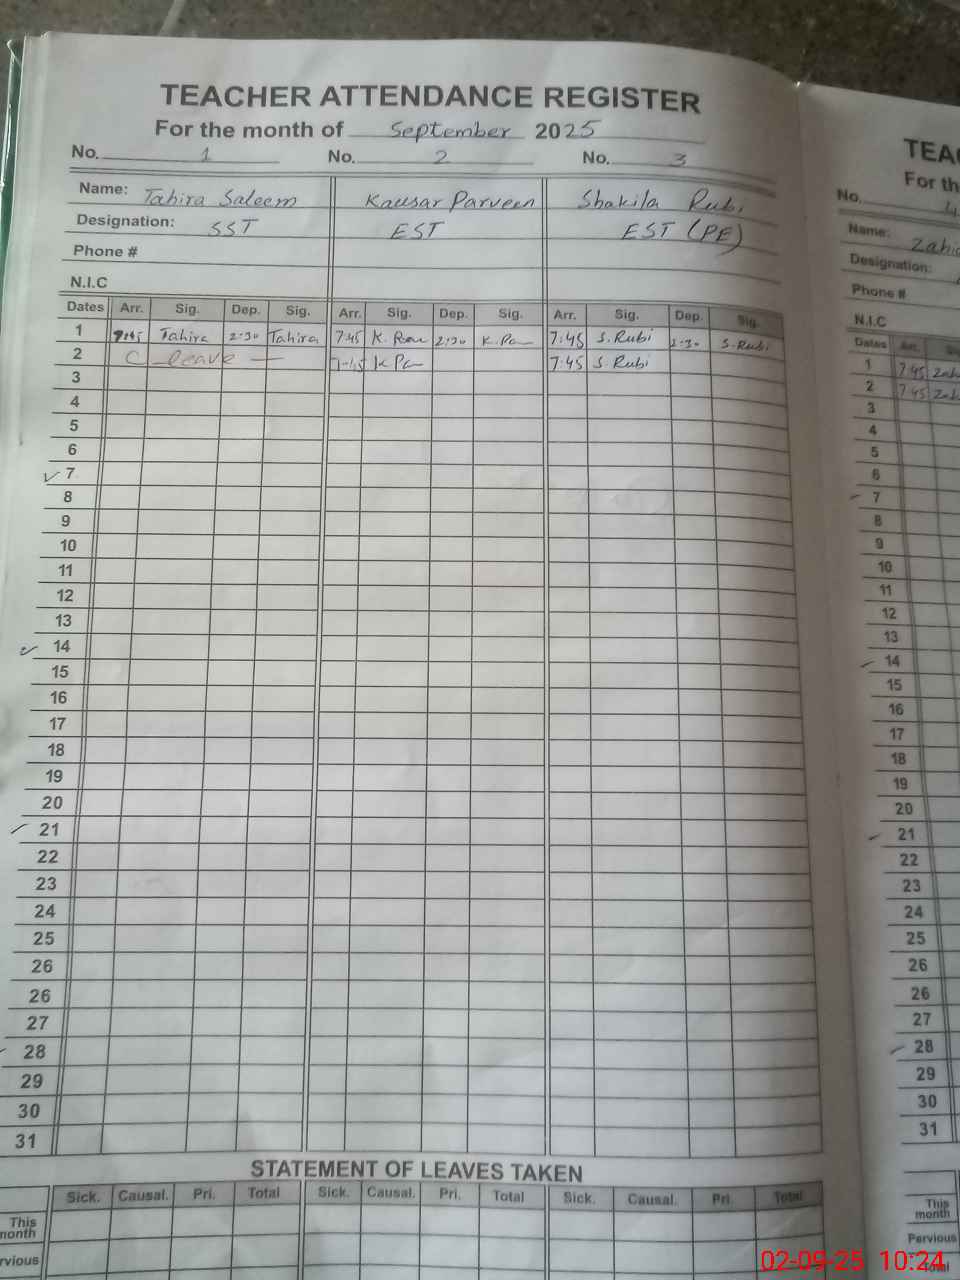 TEACHER ATTENDANCE REGISTER
For the month of September 2025
No. 1 No. 2 No. 3
Name: Tahira Saleem Kausar Parveen Shakila Rubi
Designation: SST EST EST (PE)
Phone #
N.I.C
Dates Arr. Sig. Dep. Sig. Arr. Sig. Dep. Sig. Arr. Sig. Dep. Sig.
1 7:45 Tahira 2:30 Tahira 7:45 K. 2:30 K. 7:45 S.Rubi 2:30 S.Rubi
2 C leave K 7:45 S.Rubi
3
4
5
6
7
8
9
10
11
12
13
14
15
16
17
18
19
20
21
22
23
24
25
26
26
27
28
29
30
31
STATEMENT OF LEAVES TAKEN
Sick. Causal. Pri. Total Sick. Causal. Pri. Total Sick. Causal. Pri. Total
This
month
rvious
TEA
For th
No. 4
Name: Zahi
Designation:
Phone #
N.I.C
Dates Arr.
1 7:45 Zah
2 7:45 Zah
3
4
5
6
7
8
9
10
11
12
13
14
15
16
17
18
19
20
21
22
23
24
25
26
26
27
28
29
30
31
This
month
Pervious
Total
02-09-25 10:24